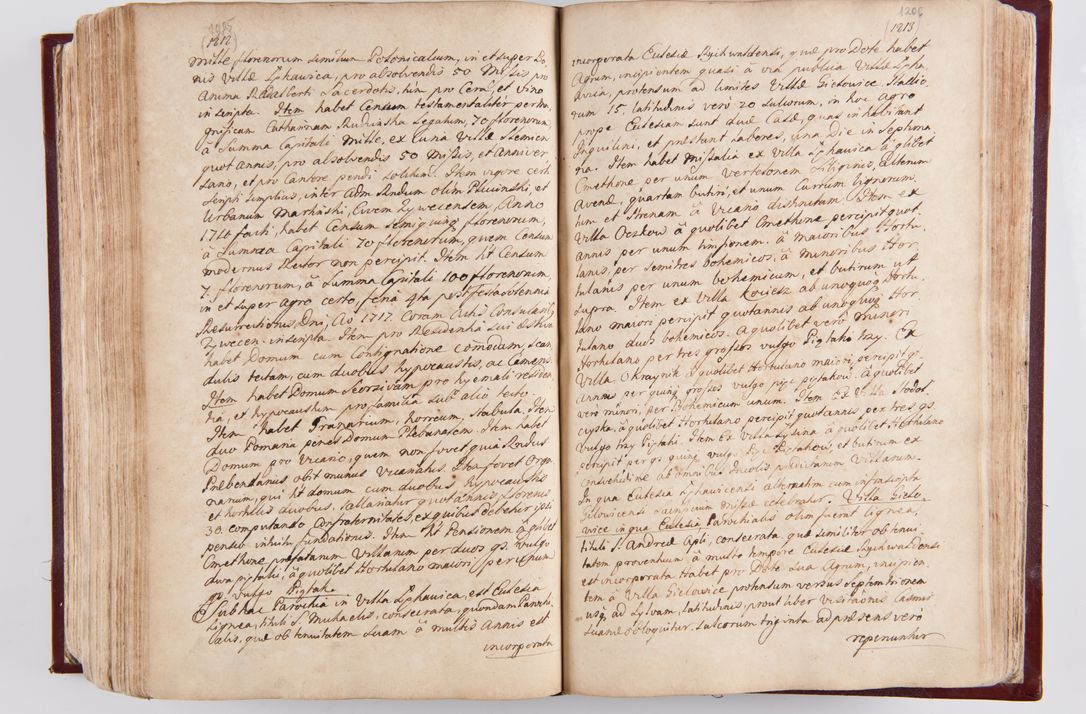 1205
(1212)
mille florenorum similium Polonicalium, in et super Bo-
nis Villæ Lyhavica, pro absolvendis 50 Missis pro
Anima R. Adalberti Sacerdotis, hin pro Cera, et vino
inscripta. Item habet Censum testamentaliter per
grificam Catharinam Rudzinska Legatum, 70 florenorum
à Summa Capitali Mille, ex Curia Villæ
quot annis, pro absolvendis 50 Missis, et Anniver
sario, et pro Cantore pendi solitum. Item vigore certi
scripti simplicis, inter Adm Rndum olim Pluvinski, et
Urbanum Marhinski, Civem Zywecensem, Anno
1710 facti, habet Censum semiquinq florenorum,
à Summa Capitali 70 florenorum, quem Censum
modernus Rector non percipit. Item ht Censum
7. florenorum, à Summa Capitali 100 florenorum,
in et super agro certo, feria 4ta post Festa solennia
Resurrectionis Dni, Ao 1717. Coram Actis Consularib
Zywecen. inscripta. Item pro Residentia sui
habet Domum cum Contignatione comodam, scan
dulis tectam, cum duobus hypocaustis, ac Camera
Item habet Domum seorsivam pro hyemali residen
tia, et hypocaustum pro familia sub alio tecto.
Item habet Granarium, horreum, stabula. Item
duo Pomaria penes Domum Plebanalem. Item habet
Domum pro Vicario, quem non fovet quia Rndus
Præbendarius obit munus Vicariatus. Item fovet Orga
narium, qui ht domum cum duobus hypocaustis
et hortulis duobus. Sallariatur quotannis florenis
30. computando Confraternitates, ex quibus debetur ipsi
pensio intuitu fundationis. Item ht Pensionem à qlibet
Cmethone præfatarum Villarum per duos gs. vulgo
dwa piątaki, à quolibet Hortulano maiori per unum
gs. vulgo Piątak.
Sub hac Parochia in Villa Lyhavica, est Ecclesia
Lignea, tituli S. Michaelis, consecrata, quondam Parochi
alis, quæ ob tenuitatem suam à multis Annis est
incorporata
1206
(1213)
incorporata Ecclesiæ Rychwaldensi, quæ pro Dote habet
Agrum, incipientem quasi à via publica Villæ Lyha
vica, protensum ad limites Villæ Gielowice Stadio
rum 15. latitudinis verò 20 sulcorum, in hoc agro
prope Ecclesiam sunt duæ Casæ, quas inhabitant
Inquilini, et præstant labores, una die in septima
na. Item habet Missalia ex Villa Lyhavica à qlibet
Cmethone per unum vertesonem Siliginis, alterum
Avenæ, quartam butiri, et unum Currum lignorum.
hin et strenam à Vicario distributam. Item ex
Villa Oczkow à quolibet Cmethone percipit quot
annis per unum timfonem. à maioribus Hortu
lanis, per semitres bohemicos, à minoribus Hor
tulanis per unum bohemicum, et butirum ut
supra. Item ex Villa Kociesz ab unoquoq Hortu
lano maiori percipit quotannis ab unoquoq Hor
tulano duos bohemicos. à quolibet verò minori
Hortulano per tres grossos vulgo Piątaki trzy. Ex
Villa Okraynik à quolibet Hortulano maiori, percipit q.
Annis per quinq grossos vulgo pięć piątakow. à quolibet
verò minori, per Bohemicum unum. Item Ex Villa Slodos
cyska, à quolibet Hortulano percipit quotannis per tres gs.
vulgo trzy Piątaki. Item Ex Villa Lysina à quolibet Hortulano
percipit per gs quinq vulgo pięć Piątakow, et butirum ex
consvetudine ab omnibus Incolis prædictarum Villarum.
In qua Ecclesia Lyhavicensi alternatim cum infrascripta
Gilowicensi sacrificium Missæ celebratur. Villa Gielo-
wice in qua Ecclesia Parochialis olim fuerat lignea,
tituli S. Andreæ Apli, consecrata, quæ similiter ob tenui
tatem proventuum à multo tempore Ecclesiæ Rychwaldensi
est incorporata. Habet pro Dote sua Agrum, incipien
tem à Villa Gielowice protensum versus septemtrionem
usq ad sylvam, latitudinis, prout liber visitationis
suamet obloquitur. Sulcorum triginta ad præsens verò
reperiuntur